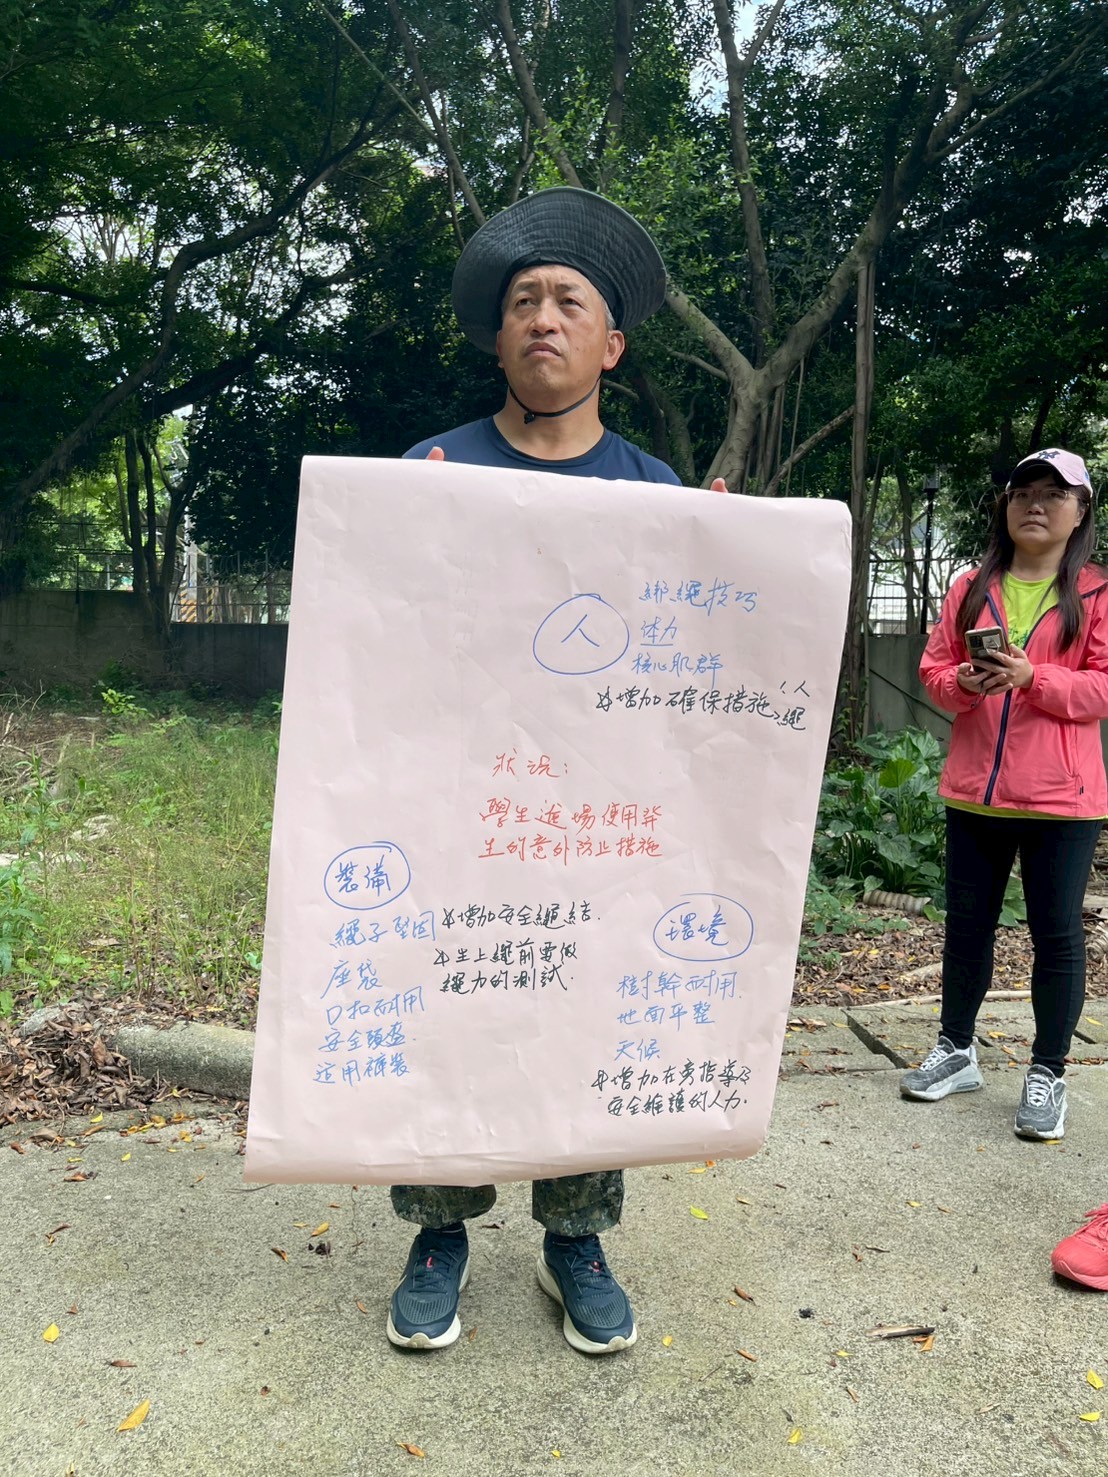 人
綁繩技巧
体力
核心肌群
*增加確保措施 人 繩
狀況:
學生進場使用
生的意外防止措施
裝備
繩子堅固
座袋
D扣耐用
安全頭盔.
適用褲裝
*增加安全繩結.
*生上繩前要做
繩力的測試.
環境
樹幹耐用.
地面平整
天候
*增加在旁指導及
安全維護的人力.